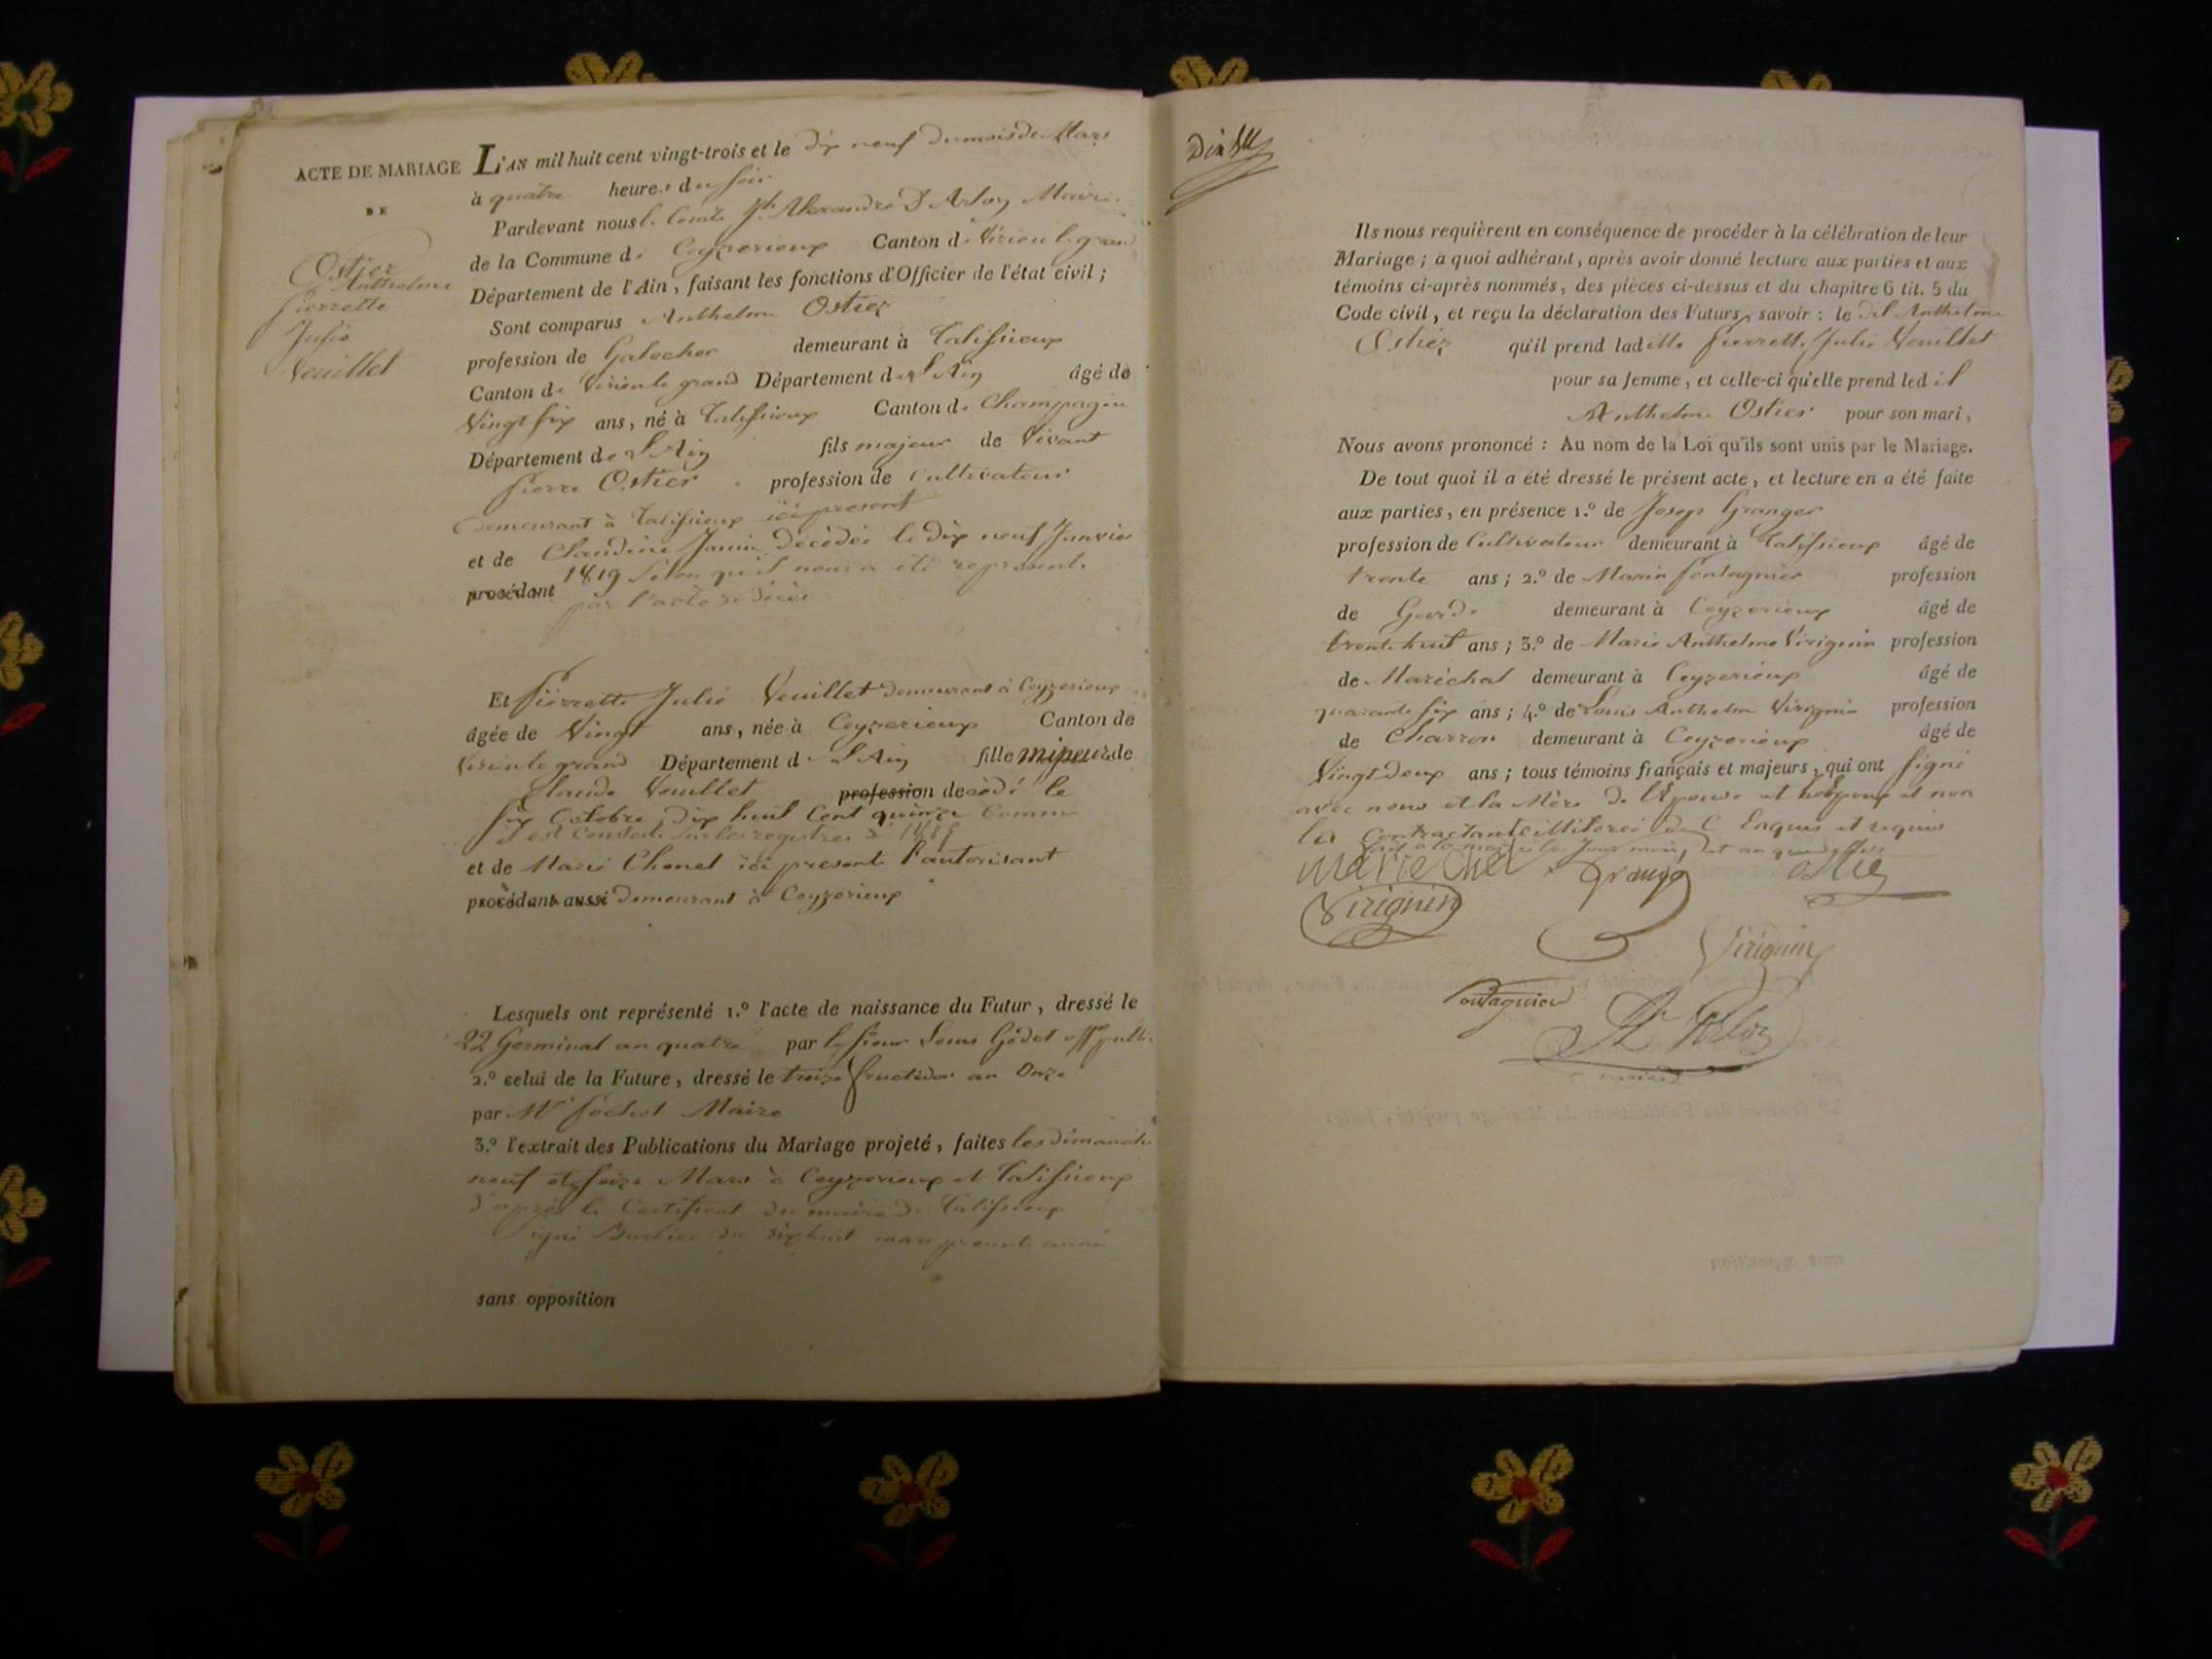 ACTE DE MARIAGE
DE
Ostier
Anthelme
Pierrette
Julie
Veuillet
L'AN mil huit cent vingt-trois et le dix neuf du mois de Mars
à quatre heures du soir
Pardevant nous le Comte Jh. Alexandre D'Arloz Maire
de la Commune de Ceyzerieux Canton de Virieu le grand
Département de l'Ain, faisant les fonctions d'Officier de l'état civil;
Sont comparus Anthelme Ostier
profession de Galocher demeurant à Talissieux
Canton de Virieu le grand Département de L'Ain âgé de
Vingt six ans, né à Talissieux Canton de Champagne
Département de L'Ain fils majeur de Vivant
Pierre Ostier profession de Cultivateur
demeurant à Talissieux ici present
et de Claudine Janin Décédée le dix neuf Janvier
1819 selon qu'il nous a été represente
procédant par l'acte de décès
Et Pierrette Julie Veuillet demeurant à Ceyzerieux
âgée de Vingt ans, née à Ceyzerieux Canton de
Virieu le grand Département de L'Ain fille mineure de
Claude Veuillet profession decédé le
six Octobre dix huit Cent quinze Comme
il est Constaté sur les registres de 1815
et de Marie Chenel ici presente l'autorisant
procédant aussi demeurant à Ceyzerieux
Lesquels ont représenté 1.º l'acte de naissance du Futur, dressé le
22 Germinal an quatre par le sieur Louis Godet off public
2.º celui de la Future, dressé le treize fructidor an Onze
par Mr Maire
3.º l'extrait des Publications du Mariage projeté, faites les dimanche
neuf et seize Mars à Ceyzerieux et Talissieux
d'après le Certificat du maire de Talissieux
signé Barbier du dix huit mars presente année
sans opposition
Ils nous requièrent en conséquence de procéder à la célébration de leur
Mariage; à quoi adhérant, après avoir donné lecture aux parties et aux
témoins ci-après nommés, des pièces ci-dessus et du chapitre 6 tit. 5 du
Code civil, et reçu la déclaration des Futurs, savoir: le dit Anthelme
Ostier qu'il prend ladite Pierrette Julie Veuillet
pour sa femme, et celle-ci qu'elle prend ledit
Anthelme Ostier pour son mari,
Nous avons prononcé: Au nom de la Loi qu'ils sont unis par le Mariage.
De tout quoi il a été dressé le présent acte, et lecture en a été faite
aux parties, en présence 1.º de Josep Granger
profession de Cultivateur demeurant à Talissieux âgé de
trente ans; 2.º de Marin Pontagnier profession
de Garde demeurant à Ceyzerieux âgé de
trente huit ans; 3.º de Marie Anthelme Virignin profession
de Maréchal demeurant à Ceyzerieux âgé de
quarante six ans; 4.º de Louis Anthelme Virignin profession
de Charron demeurant à Ceyzerieux âgé de
Vingt deux ans; tous témoins français et majeurs, qui ont signé
avec nous et la Mère de l'Epouse et l'Epoux et non
la Contractante illiterée de ce Enquis et requis
Marie Chel Grange Ostie
Virignin
Virignin
Pontagnier